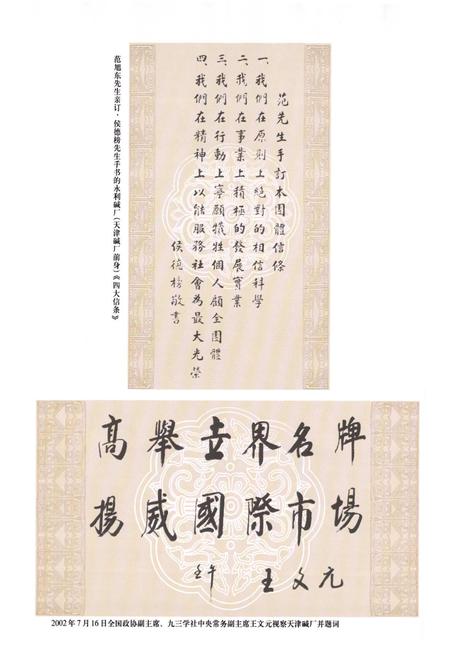 范先生手訂本團體信條
一、我們在原則上絕對的相信科學
二、我們在事業上積極的發展實業
三、我們在行動上寧願犧牲個人顧全團體
四、我們在精神上以能服務社會為最大光榮
侯德榜敬書
范旭东先生亲订，侯德榜先生手书的永利碱厂(天津碱厂前身)《四大信条》
高舉世界名牌
揚威國際市場
壬午 王文元
2002年7月16日全国政协副主席、九三学社中央常务副主席王文元视察天津碱厂并题词